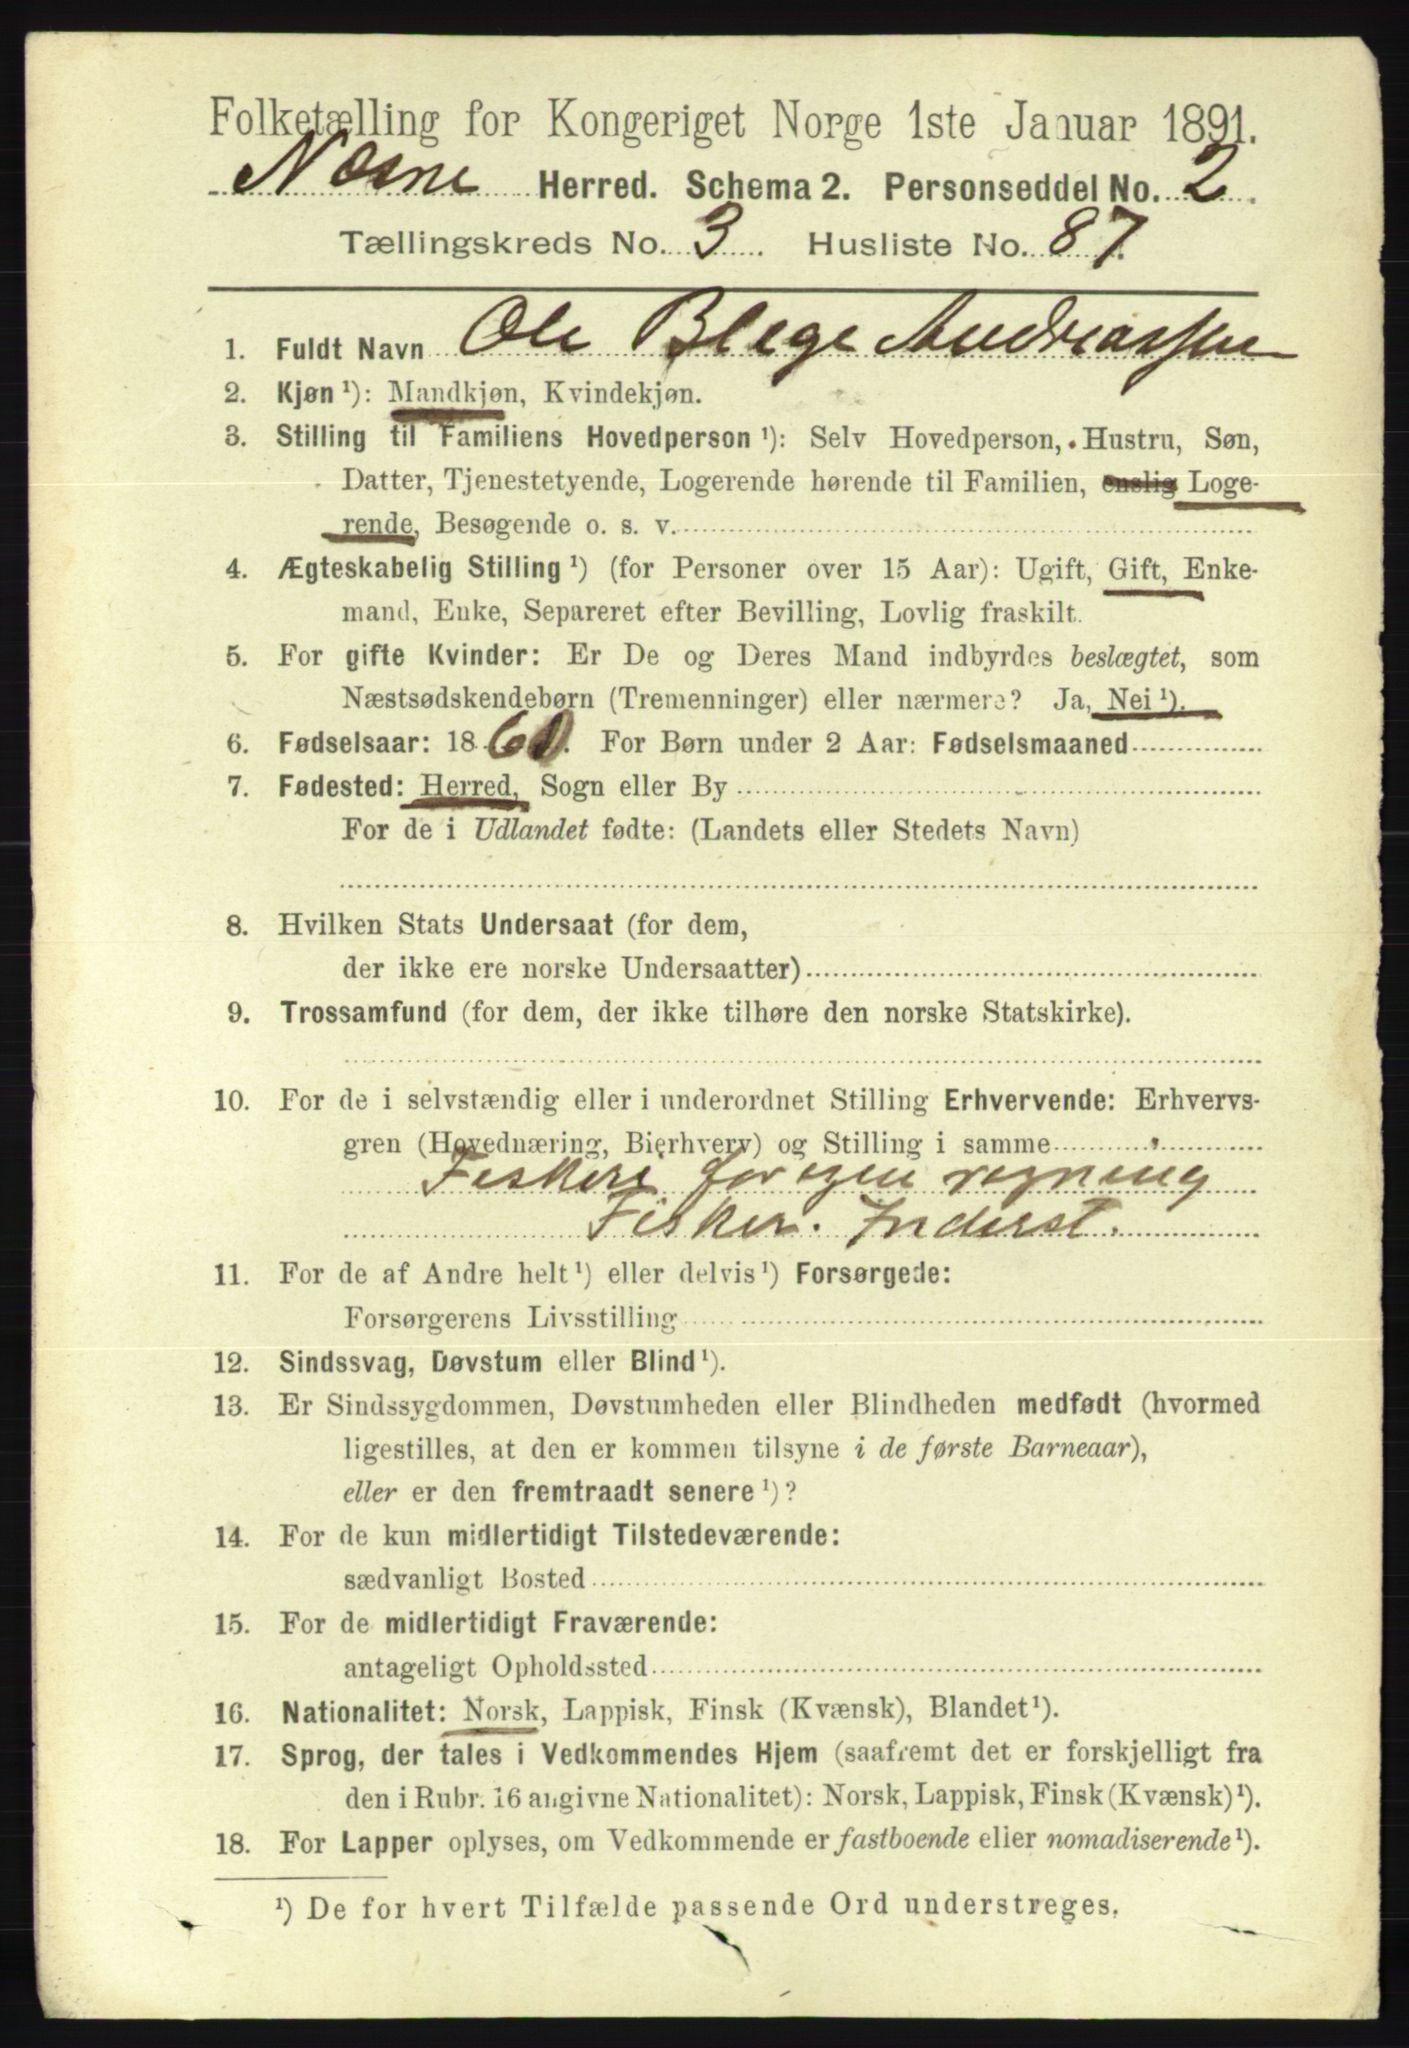 Folketælling for Kongeriget Norge 1ste Januar 1891.
Næsne Herred. Schema 2. Personseddel No. 2.
Tællingskreds No. 3. Husliste No. 87.
1. Fuldt Navn Ole Blege Andreassen
2. Kjøn ¹): Mandkjøn, Kvindekjøn.
3. Stilling til Familiens Hovedperson ¹): Selv Hovedperson, Hustru, Søn,
Datter, Tjenestetyende, Logerende hørende til Familien, enslig Loge-
rende, Besøgende o. s. v.
4. Ægteskabelig Stilling ¹) (for Personer over 15 Aar): Ugift, Gift, Enke-
mand, Enke, Separeret efter Bevilling, Lovlig fraskilt.
5. For gifte Kvinder: Er De og Deres Mand indbyrdes beslægtet, som
Næstsødskendebørn (Tremenninger) eller nærmere? Ja, Nei ¹).
6. Fødselsaar: 18 . For Børn under 2 Aar: Fødselsmaaned
7. Fødested: Herred, Sogn eller By
For de i Udlandet fødte: (Landets eller Stedets Navn)
8. Hvilken Stats Undersaat (for dem,
der ikke ere norske Undersaatter)
9. Trossamfund (for dem, der ikke tilhøre den norske Statskirke).
10. For de i selvstændig eller i underordnet Stilling Erhvervende: Erhvervs-
gren (Hovednæring, Bierhverv) og Stilling i samme
Fiskeri for egen regning
Fisker. Inderst.
11. For de af Andre helt ¹) eller delvis ¹) Forsørgede:
Forsørgerens Livsstilling
12. Sindssvag, Døvstum eller Blind ¹).
13. Er Sindssygdommen, Døvstumheden eller Blindheden medfødt (hvormed
ligestilles, at den er kommen tilsyne i de første Barneaar),
eller er den fremtraadt senere ¹)?
14. For de kun midlertidigt Tilstedeværende:
sædvanligt Bosted
15. For de midlertidigt Fraværende:
antageligt Opholdssted
16. Nationalitet: Norsk, Lappisk, Finsk (Kvænsk), Blandet ¹).
17. Sprog, der tales i Vedkommendes Hjem (saafremt det er forskjelligt fra
den i Rubr. 16 angivne Nationalitet): Norsk, Lappisk, Finsk (Kvænsk) ¹).
18. For Lapper oplyses, om Vedkommende er fastboende eller nomadiserende ¹).
¹) De for hvert Tilfælde passende Ord understreges.